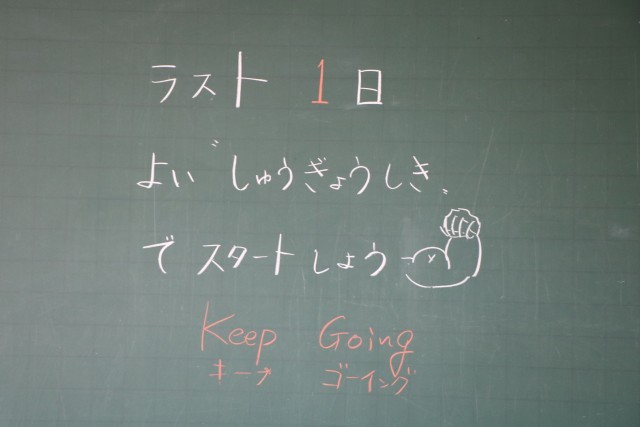 ラスト 1日
よい〝しゅうぎょうしき〟
でスタートしよう
Keep Going
キープ ゴーイング